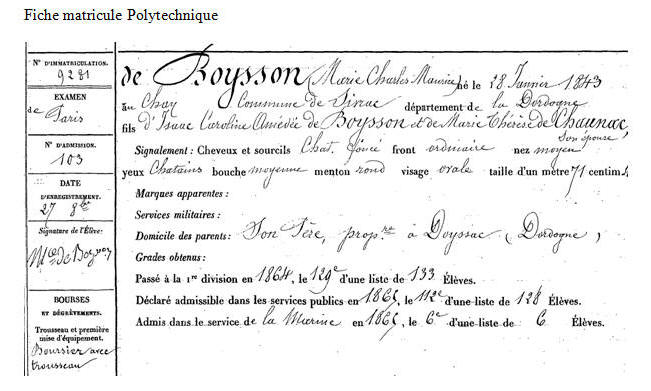 Fiche matricule Polytechnique
N° D'IMMATRICULATION.
9281
EXAMEN
de Paris
N° D'ADMISSION.
103
DATE
D'ENREGISTREMENT.
27 8bre
Signature de l'Élève:
Mce de Boysson
BOURSES
ET DÉGRÈVEMENTS.
Trousseau et première
mise d'équipement.
Boursier avec
trousseau
de Boysson (Marie Charles Maurice) né le 28 Janvier 1843
au Chay Commune de département de la Dordogne
fils d'Isaac Caroline Amédée de Boysson et de Marie Thérèse de Chaunac,
son épouse
Signalement : Cheveux et sourcils Chat. foncé front ordinaire nez moyen
yeux Chatains bouche moyenne menton rond visage ovale taille d'un mètre 71 centim.
Marques apparentes :
Services militaires :
Domicile des parents : Son Père, propre à Doyssac (Dordogne)
Grades obtenus :
Passé à la 1re division en 1864, le 129e d'une liste de 133 Élèves.
Déclaré admissible dans les services publics en 1865, le 112e d'une liste de 128 Élèves.
Admis dans le service de la Marine en 1865, le 6e d'une liste de 6 Élèves.